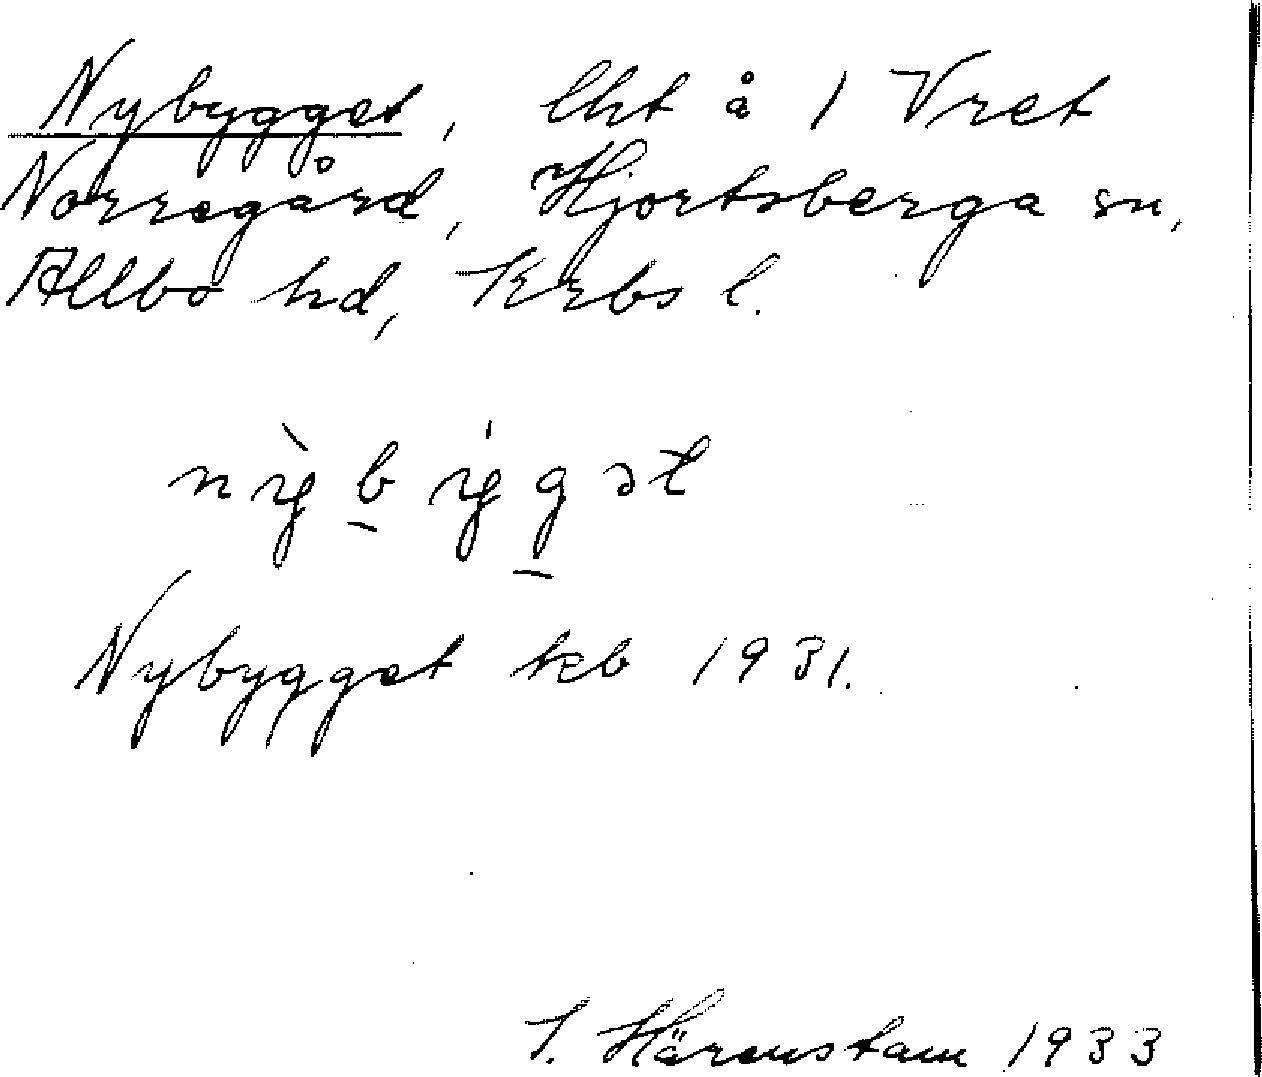 Nybygget, lht å 1 Vret
Norregård, Hjortsberga sn,
Allbo hd, Krbs l.
nỳb̲ýg̲ət
Nybygget kb 1931.
S. Härenstam 1933